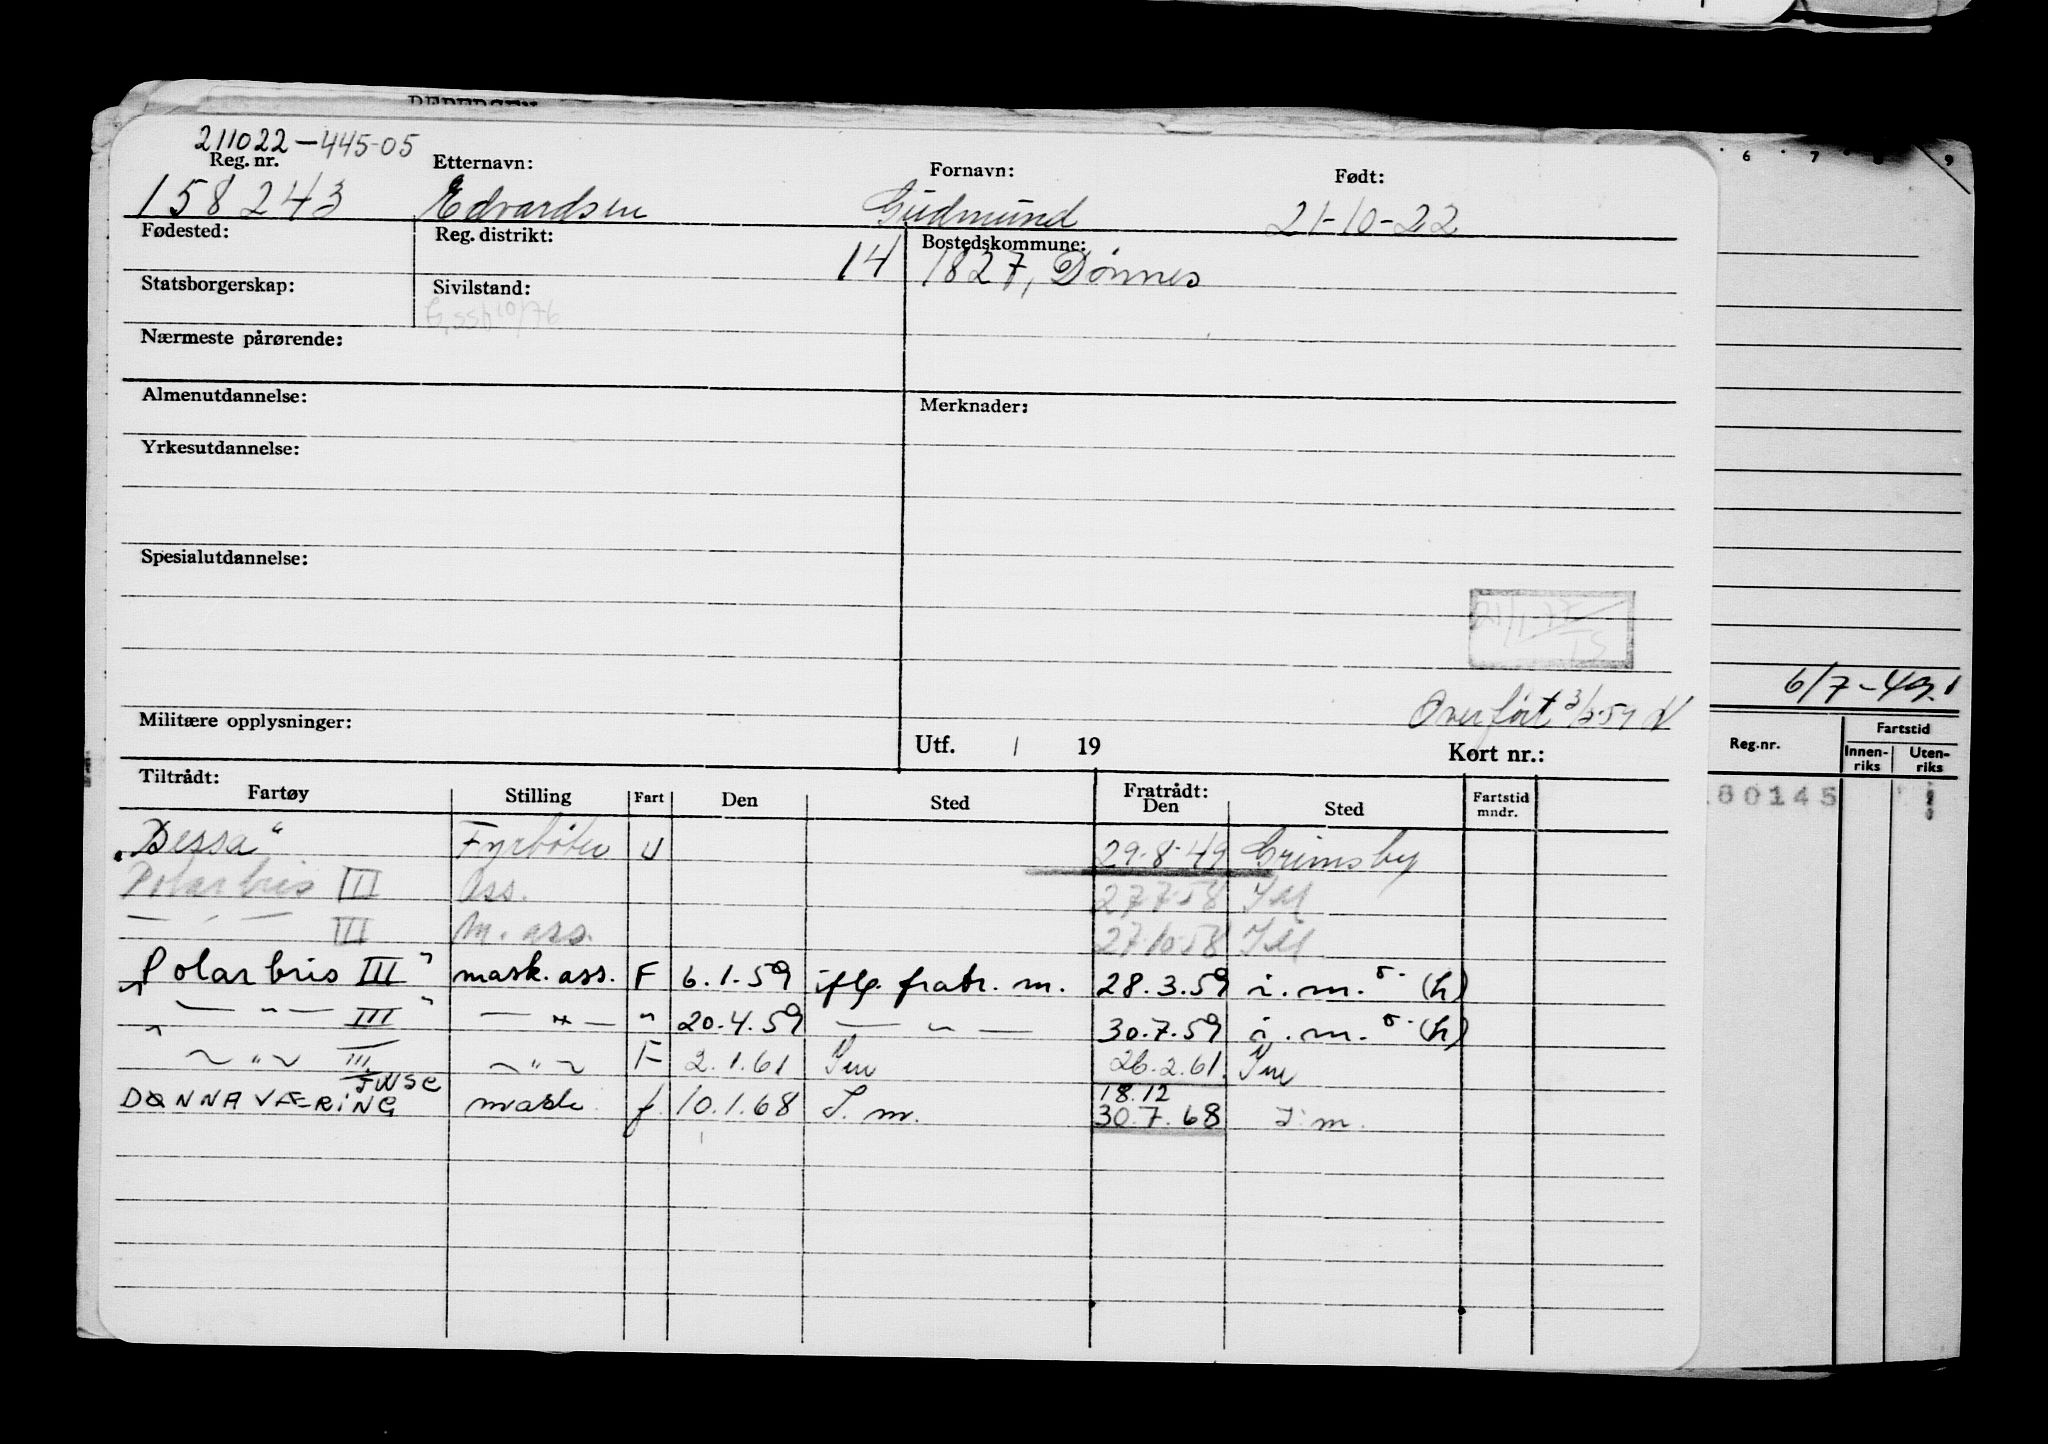 211022-445-05
Reg. nr. Etternavn: Fornavn: Født:
158243 Edvardsen Gudmund 21-10-22
Fødested: Reg. distrikt: 14 Bostedskommune:
1827, Dønnes
Statsborgerskap: Sivilstand:
Nærmeste pårørende:
Almenutdannelse: Merknader:
Yrkesutdannelse:
Spesialutdannelse:
Overført
Militære opplysninger:
Utf. / 19 Kort nr.:
Tiltrådt: Fratrådt:
Fartøy Stilling Fart Den Sted Den Sted Fartstid mndr.
"Dessa" Fyrbøter U 29-8-49 Grimsby
Polarbris III Ass. 27.7.58 IM
— " — III M. ass. 27.10.58 IM
"Polarbris III" mask. ass. F 6.1.59 iflg. fratr. m. 28.3.59 i. m. (h)
" — " — III" — " — " 20.4.59 — " — 30.7.59 i. m. (h)
~ " ~ III ~ " ~ F 2.1.61 Im 26.2.61. Im
JWSC
DØNNAVÆRING mask. f. 10.1.68 I. m. 18.12
30.7.68 I. m.
6/7-49.
Reg.nr. Fartstid
Innen-riks Uten-riks
80145
6 7 8 9